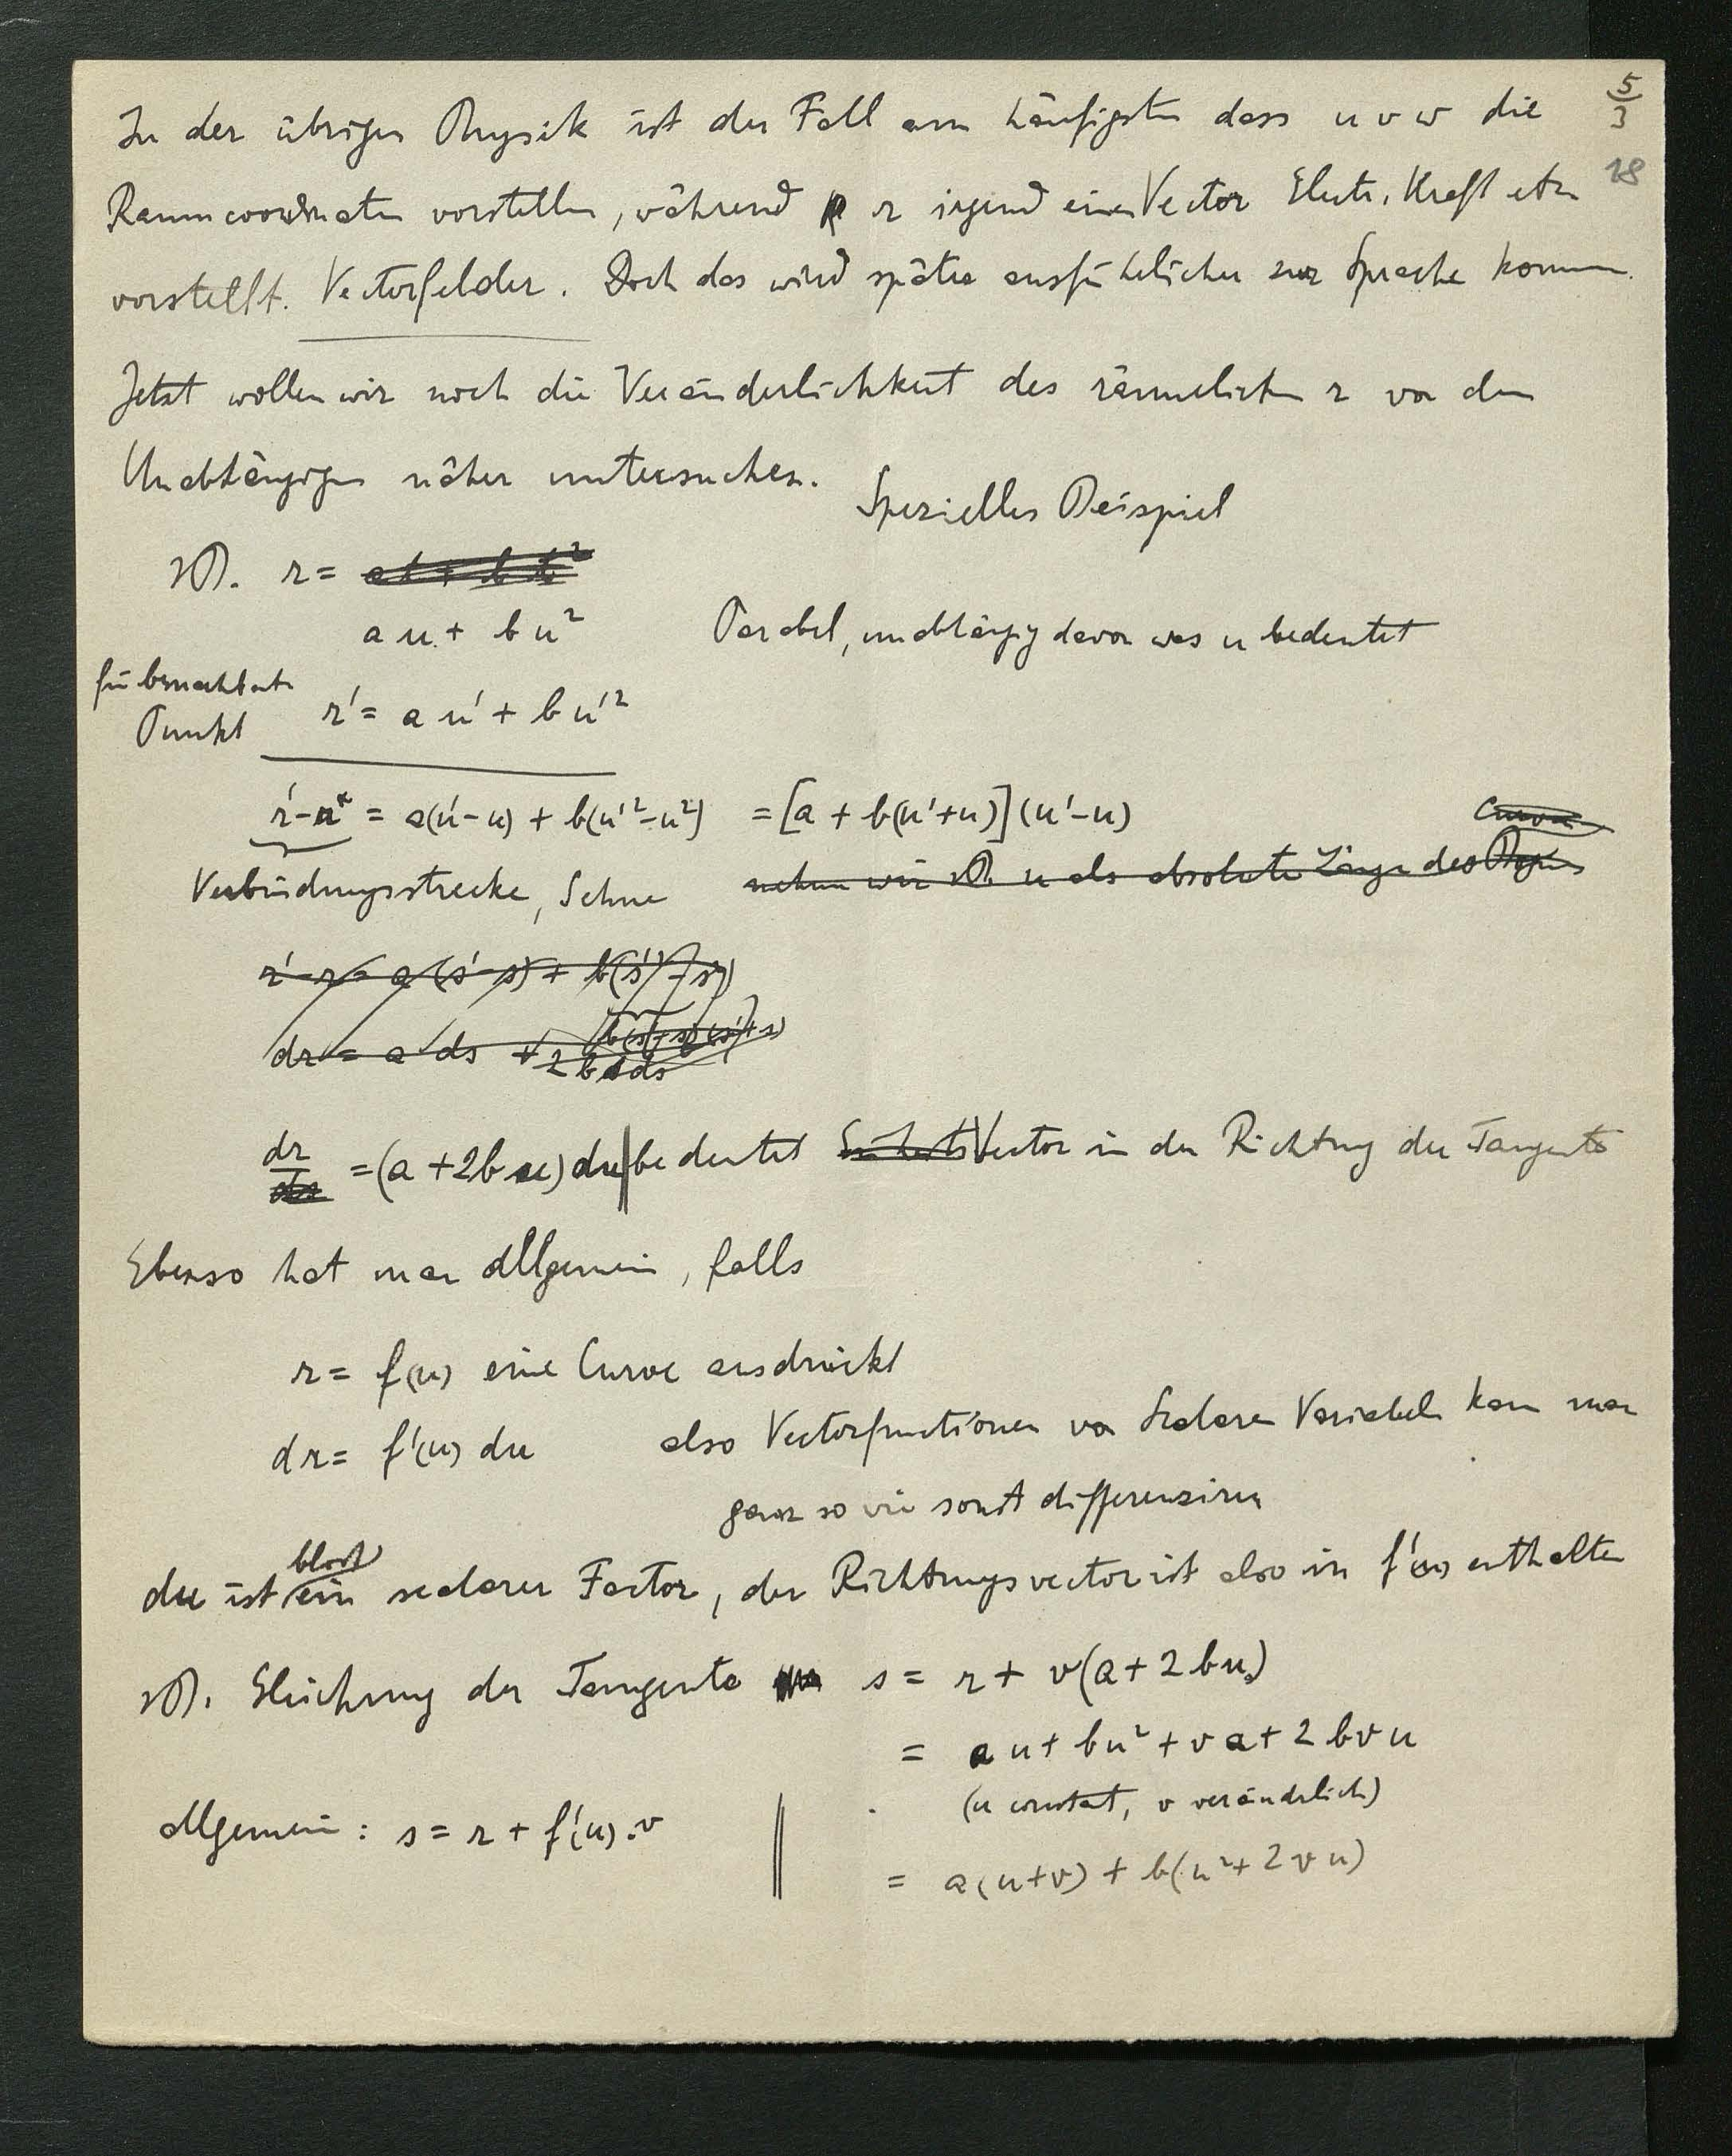 5/3
In der übrigen Physik ist der Fall am häufigsten dass u v w die
18
Raumcoordinaten vorstellen, während r irgend einen Vector Electr. Kraft etc
vorstellt. Vectorfelder. Doch das wird später ausführlicher zur Sprache kommen.
Jetzt wollen wir noch die Veränderlichkeit des räumlichen r von den
Unabhängigen näher untersuchen.
Spezielles Beispiel
zB. r = at + bt²
au + bu² Parabel, unabhängig davon was u bedeutet
für benachbarte
Punkt r' = au' + bu'²
r'-r = a(u'-u) + b(u'²-u²) = [a + b(u'+u)](u'-u)
Curve
Verbindungsstrecke, Sehne nehmen wir zB. u als absolute Länge des Bogens
r'-r = a(s'-s) + b(s'²-s²)
b(s'-s)(s'+s)
dr = a ds + 2bsds
dr/ds = (a + 2bu)du | bedeutet Einheits Vector in der Richtung der Tangente
Ebenso hat man allgemein, falls
r = f(u) eine Curve ausdrückt
dr = f'(u) du also Vectorfunctionen von Scalaren Variabeln kann man
ganz so wie sonst differenziren
blos
du ist ein scalarer Factor, der Richtungsvector ist also in f'(u) enthalten
zB. Gleichung der Tangente s = r + v(a + 2bu)
= au + bu² + va + 2bvu
(u constant, v veränderlich)
allgemein: s = r + f'(u).v
= a(u+v) + b(u² + 2vu)